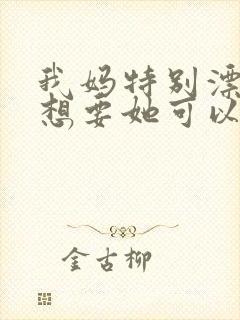 我妈特别漂
想要她可以
金古柳